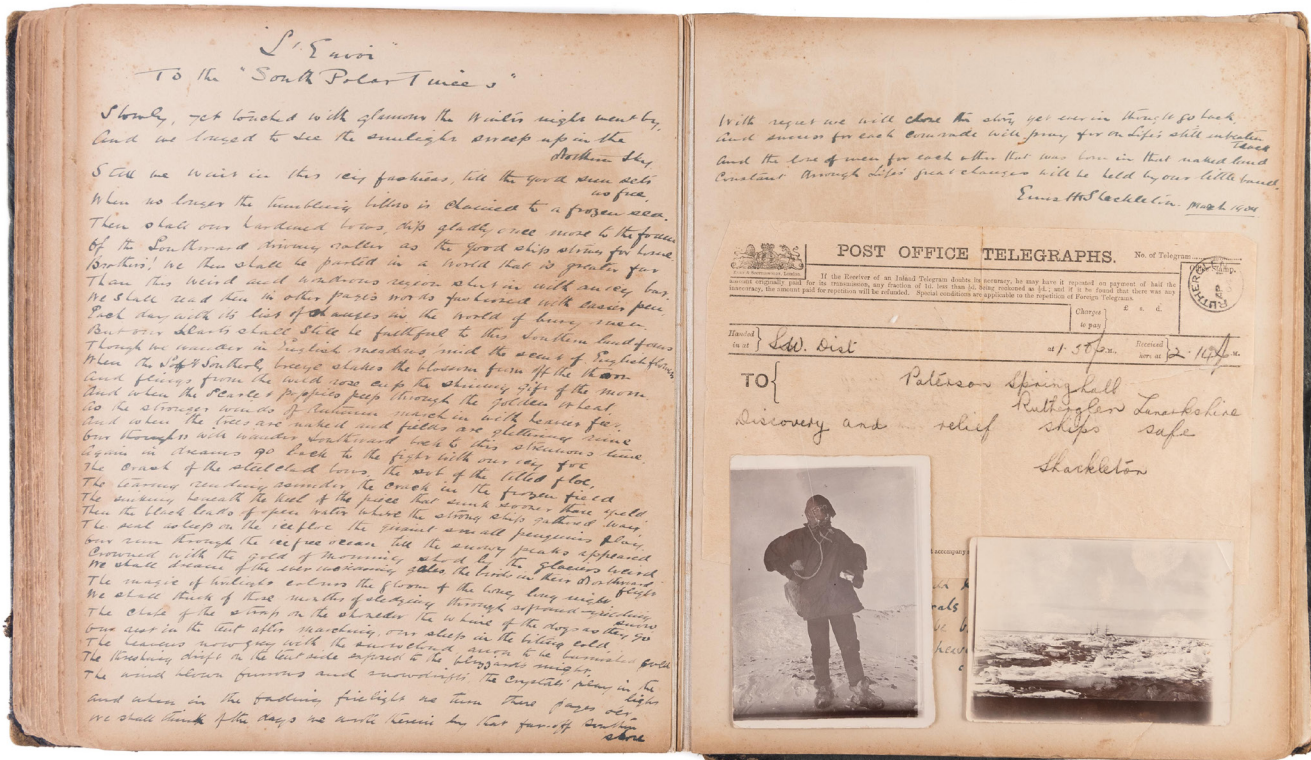 "L'Envoi"
To the "South Polar Times"
Slowly, yet touched with glamour the Winter night went by,
And we longed to see the sunlight sweep up in the
Northern Sky
Still we wait in this icy fastness, till the good sun sets
us free,
When no longer the tumbling billow is chained to a frozen sea.
Then shall our hardened bows, dip gladly once more to the foam
Of the Southward driving roller as the good ship strives for home
Brothers! we then shall be parted in a world that is greater far
Than this weird and wondrous region shut in with an icy bar.
We shall read then in other pages words fashioned with easier pen
Each day with its list of changes in the world of busy men
But our hearts shall still be faithful to this Southern land of ours
Though we wander in English meadows, mid the scent of English flowers
When the soft Southerly breeze shakes the blossom from off the thorn
And flings from the wild rose cup the shining gift of the morn.
And when the Scarlet poppies peep through the golden wheat,
As the stronger winds of Autumn march in with heavier feet
And when the trees are naked and fields are glittering rime
Our thoughts will wander Southward back to this strenuous time.
Again in dreams go back to the fight with our icy foe
The crash of the steel clad bows, the of the lifted floe,
The tearing rending asunder, the crack in the frozen field
The sinking beneath the keel of the piece that sunk sooner than yield
Then the black leads of open water where the strong ship gathered way,
The seal asleep on the ice floe the quaint small penguins play,
Our run through the icefree ocean till the snowy peaks appeared
Crowned with the gold of morning shod by the glaciers weird
We shall dream of the ever increasing gales the birds in their Northward
flight
The magic of twilight colours the gloom of the long, long night
We shall think of those months of sledging through soft and
snow
The chafe of the strap on the shoulder the whine of the dogs as they go
Our rest in the tent after marching, our sleep in the biting cold
The heavens now grey with the snowcloud anon to be burnished gold
The threshing drift on the tent side exposed to the blizzards might,
The wind blown furrows and snowdrifts the crystals play in the
light
And when in the fading firelight we turn these pages o'er
We shall think of the days we wrote therein by that far off Southern
shore
With regret we will close the story yet ever in thought go back
And success for each comrade will pray for on Life's still unbeaten
track
And the love of men for each other that was born in that naked land
Constant through Life's great changes will be held by our little band.
Ernest H Shackleton. March 1904
POST OFFICE TELEGRAPHS.
No. of Telegram
Stamp.
RUTHERGLEN
If the Receiver of an Inland Telegram doubts its accuracy, he may have it repeated on payment of half the
amount originally paid for its transmission, any fraction of 1d. less than ½d. being reckoned as ½d.; and if it be found that there was any
inaccuracy, the amount paid for repetition will be refunded. Special conditions are applicable to the repetition of Foreign Telegrams.
Charges
to pay
£ s. d.
Handed
in at
S.W. Dist
at
Received
here at
TO
Paterson Springhall
Rutherglen Lanarkshire
Discovery and relief ships safe
Shackleton
accompany